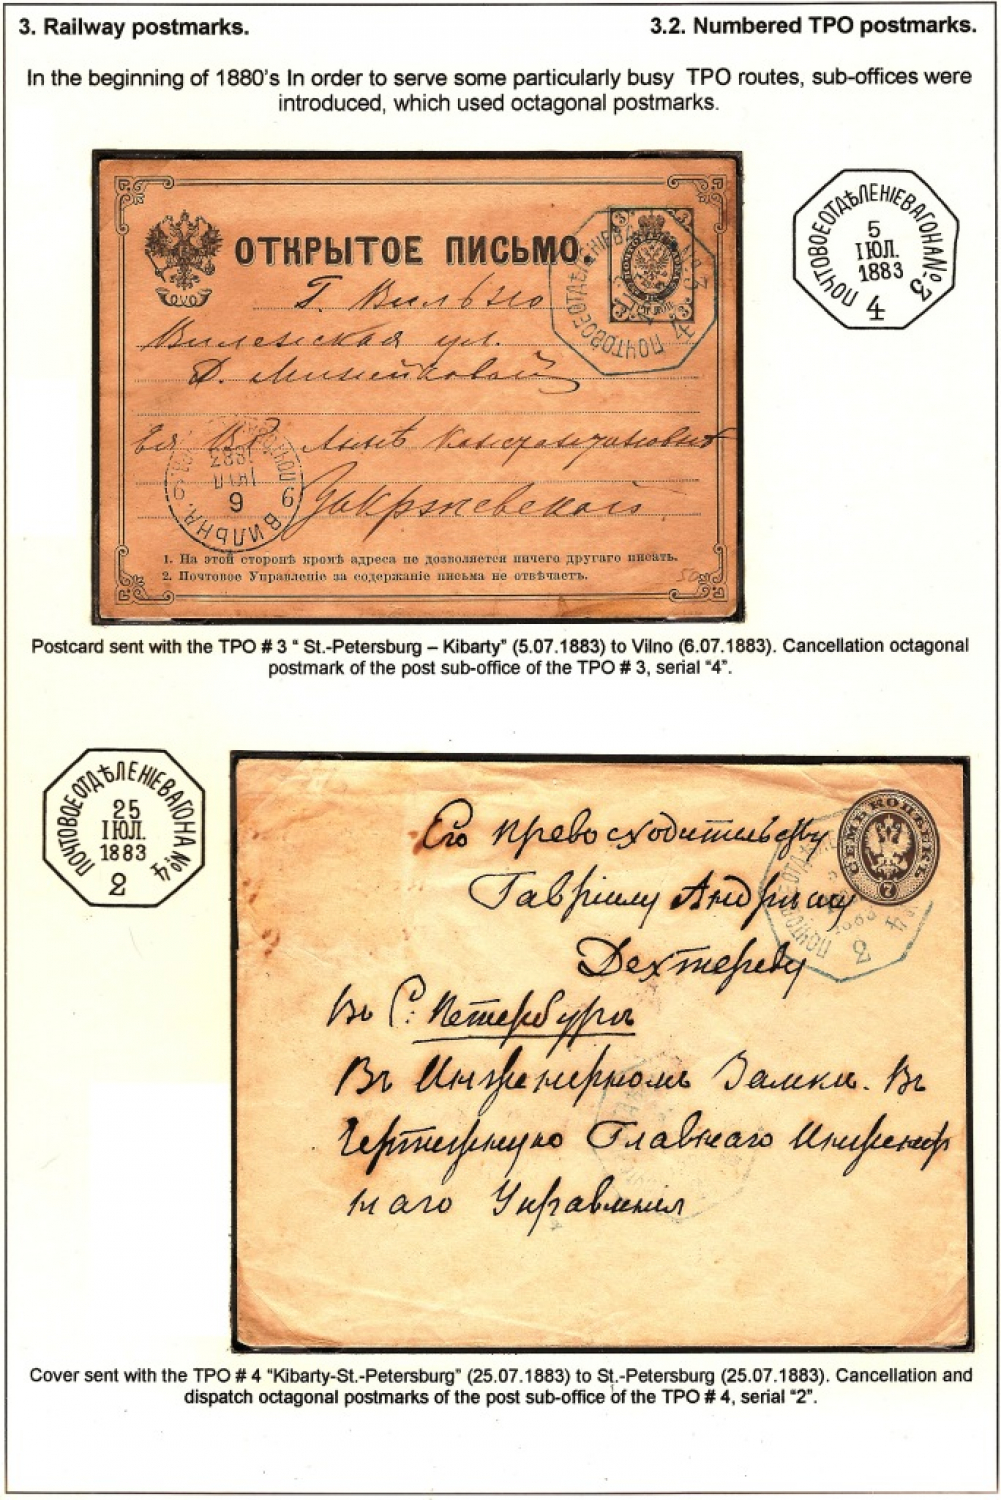 3. Railway postmarks. 3.2. Numbered TPO postmarks.
In the beginning of 1880's In order to serve some particularly busy TPO routes, sub-offices were
introduced, which used octagonal postmarks.
ОТКРЫТОЕ ПИСЬМО.
Г. Вильно
Виленская ул.
Д. Минейковой
Ея Вб Аннѣ Константиновнѣ
Закржевской
1. На этой сторонѣ кромѣ адреса не дозволяется ничего другаго писать.
2. Почтовое Управленіе за содержаніе письма не отвѣчаетъ.
ПОЧТОВОЕ ОТДѢЛЕНІЕ ВАГОНА № 3
4
ВИЛЬНА
6
ІЮЛ
1883
9
ПОЧТОВОЕ ОТДѢЛЕНІЕ ВАГОНА № 3
5
ІЮЛ.
1883
4
Postcard sent with the TPO # 3 “ St.-Petersburg – Kibarty” (5.07.1883) to Vilno (6.07.1883). Cancellation octagonal
postmark of the post sub-office of the TPO # 3, serial “4”.
ПОЧТОВОЕ ОТДѢЛЕНІЕ ВАГОНА № 4
25
ІЮЛ.
1883
2
СЕМЬ КОПѢЕКЪ
7
Его превосходительству
Гавріилу Андреичу
Дехтереву
Въ С. Петербургъ
Въ Инженерномъ Замкѣ. Въ
Чертежную Главнаго Инженер
наго Управленія
1883
4
2
Cover sent with the TPO # 4 “Kibarty-St.-Petersburg” (25.07.1883) to St.-Petersburg (25.07.1883). Cancellation and
dispatch octagonal postmarks of the post sub-office of the TPO # 4, serial “2”.